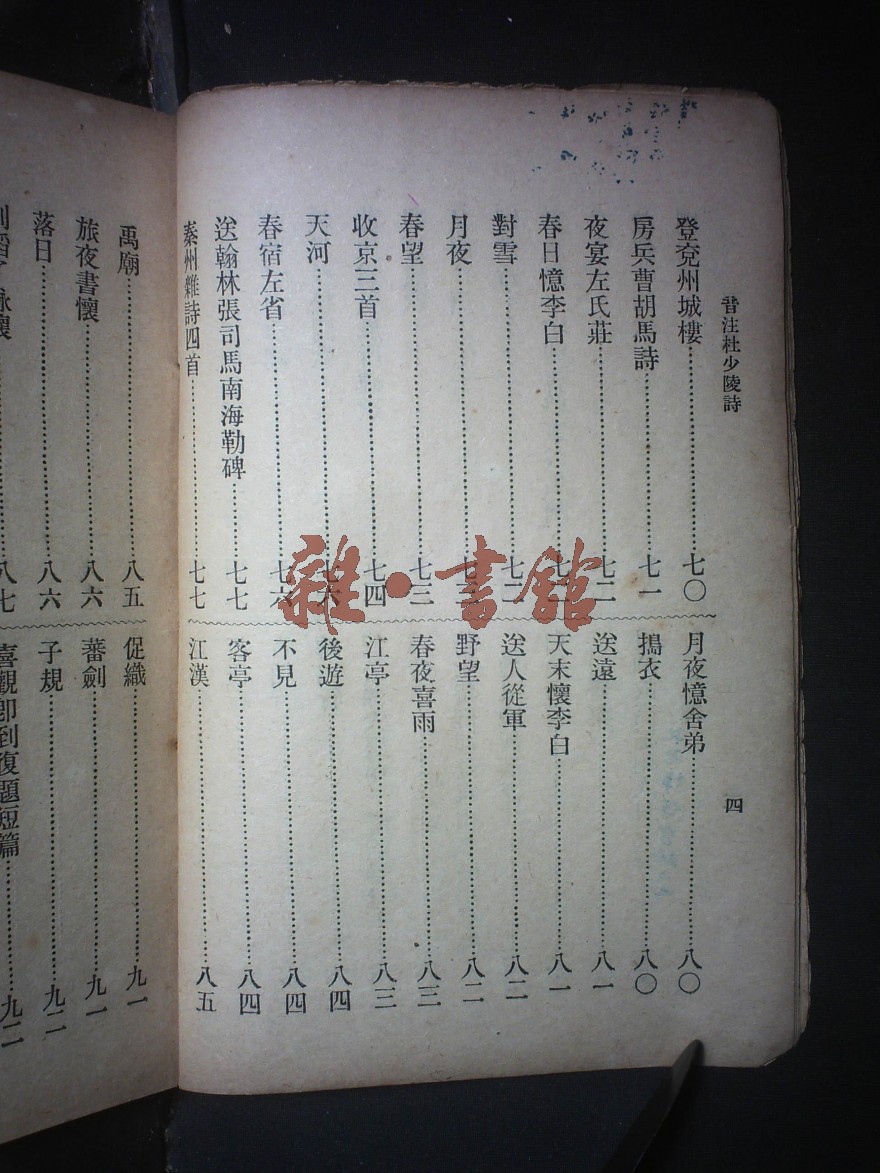 音注杜少陵詩
四
登兗州城樓……七〇
房兵曹胡馬詩……七一
夜宴左氏莊……七一
春日憶李白……
對雪……七二
月夜……
春望……七三
收京三首……七四
天河……七六
春宿左省……七六
送翰林張司馬南海勒碑……七七
秦州雜詩四首……七七
月夜憶舍弟……八〇
搗衣……八〇
送遠……八一
天末懷李白……八一
送人從軍……八二
野望……八二
春夜喜雨……八三
江亭……八三
後遊……八四
不見……八四
客亭……八四
江漢……八五
禹廟……八五
旅夜書懷……八六
落日……八六
詠懷……八七
促織……九一
蕃劍……九一
子規……九二
喜觀卽到復題短篇……九二
雜·書館